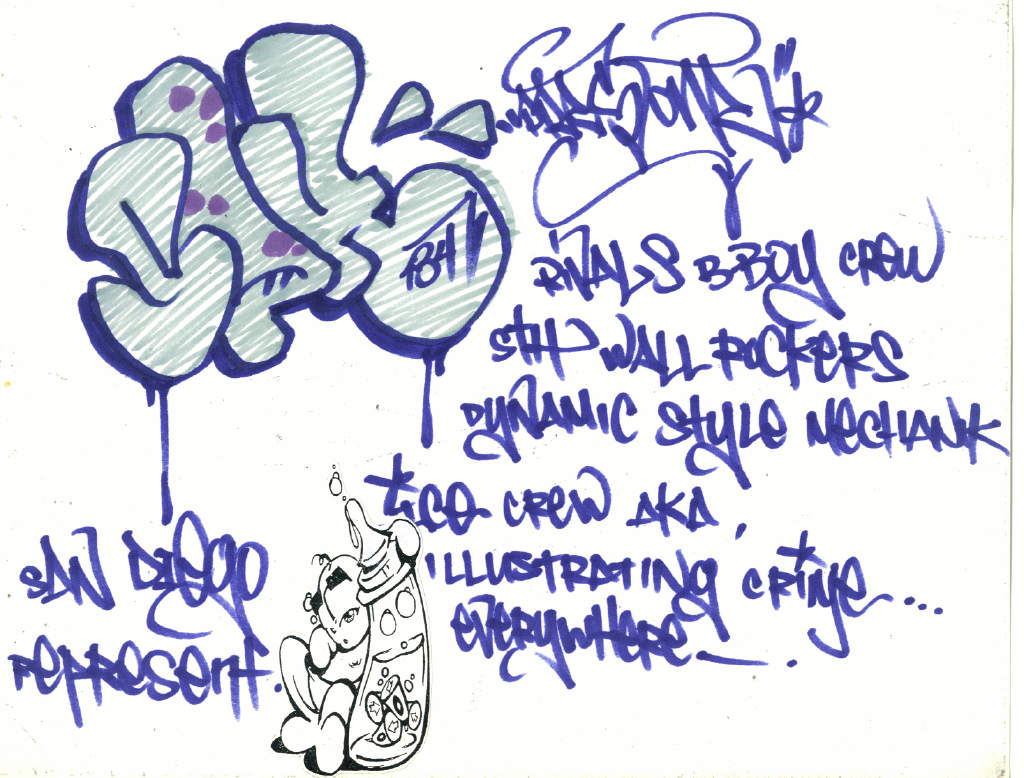 RIVALS B-BOY CREW
WALL ROCKERS
DYNAMIC STYLE MECHANIK
ICE CREW AKA
ILLUSTRATING CRIME...
EVERYWHERE
SAN DIEGO
REPRESENT.